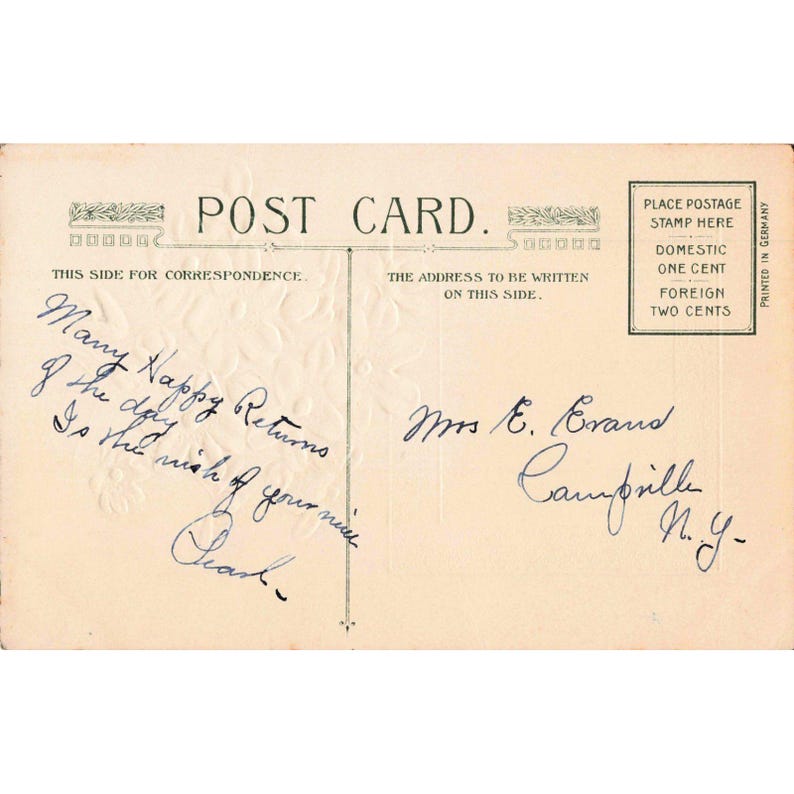 POST CARD.
THIS SIDE FOR CORRESPONDENCE.
Many Happy Returns
of the day
Is the wish of your niece
Pearl.
THE ADDRESS TO BE WRITTEN
ON THIS SIDE.
PLACE POSTAGE
STAMP HERE
DOMESTIC
ONE CENT
FOREIGN
TWO CENTS
PRINTED IN GERMANY
Mrs E. Evans
Campville
N.Y-